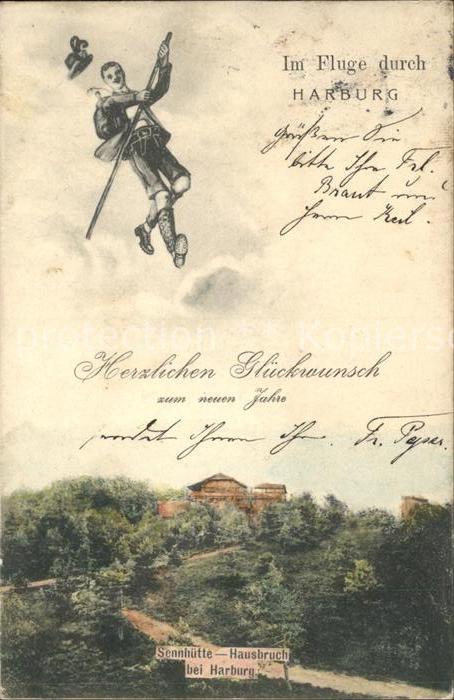 Im Fluge durch
HARBURG
Grüßen Sie
bitte Ihr Frl.
Braut und
Herrn Keil.
protection ** Kopiersc
Herzlichen Glückwunsch
zum neuen Jahre
sendet Ihnen Ihr Fr. Peyser.
Sennhütte — Hausbruch
bei Harburg.